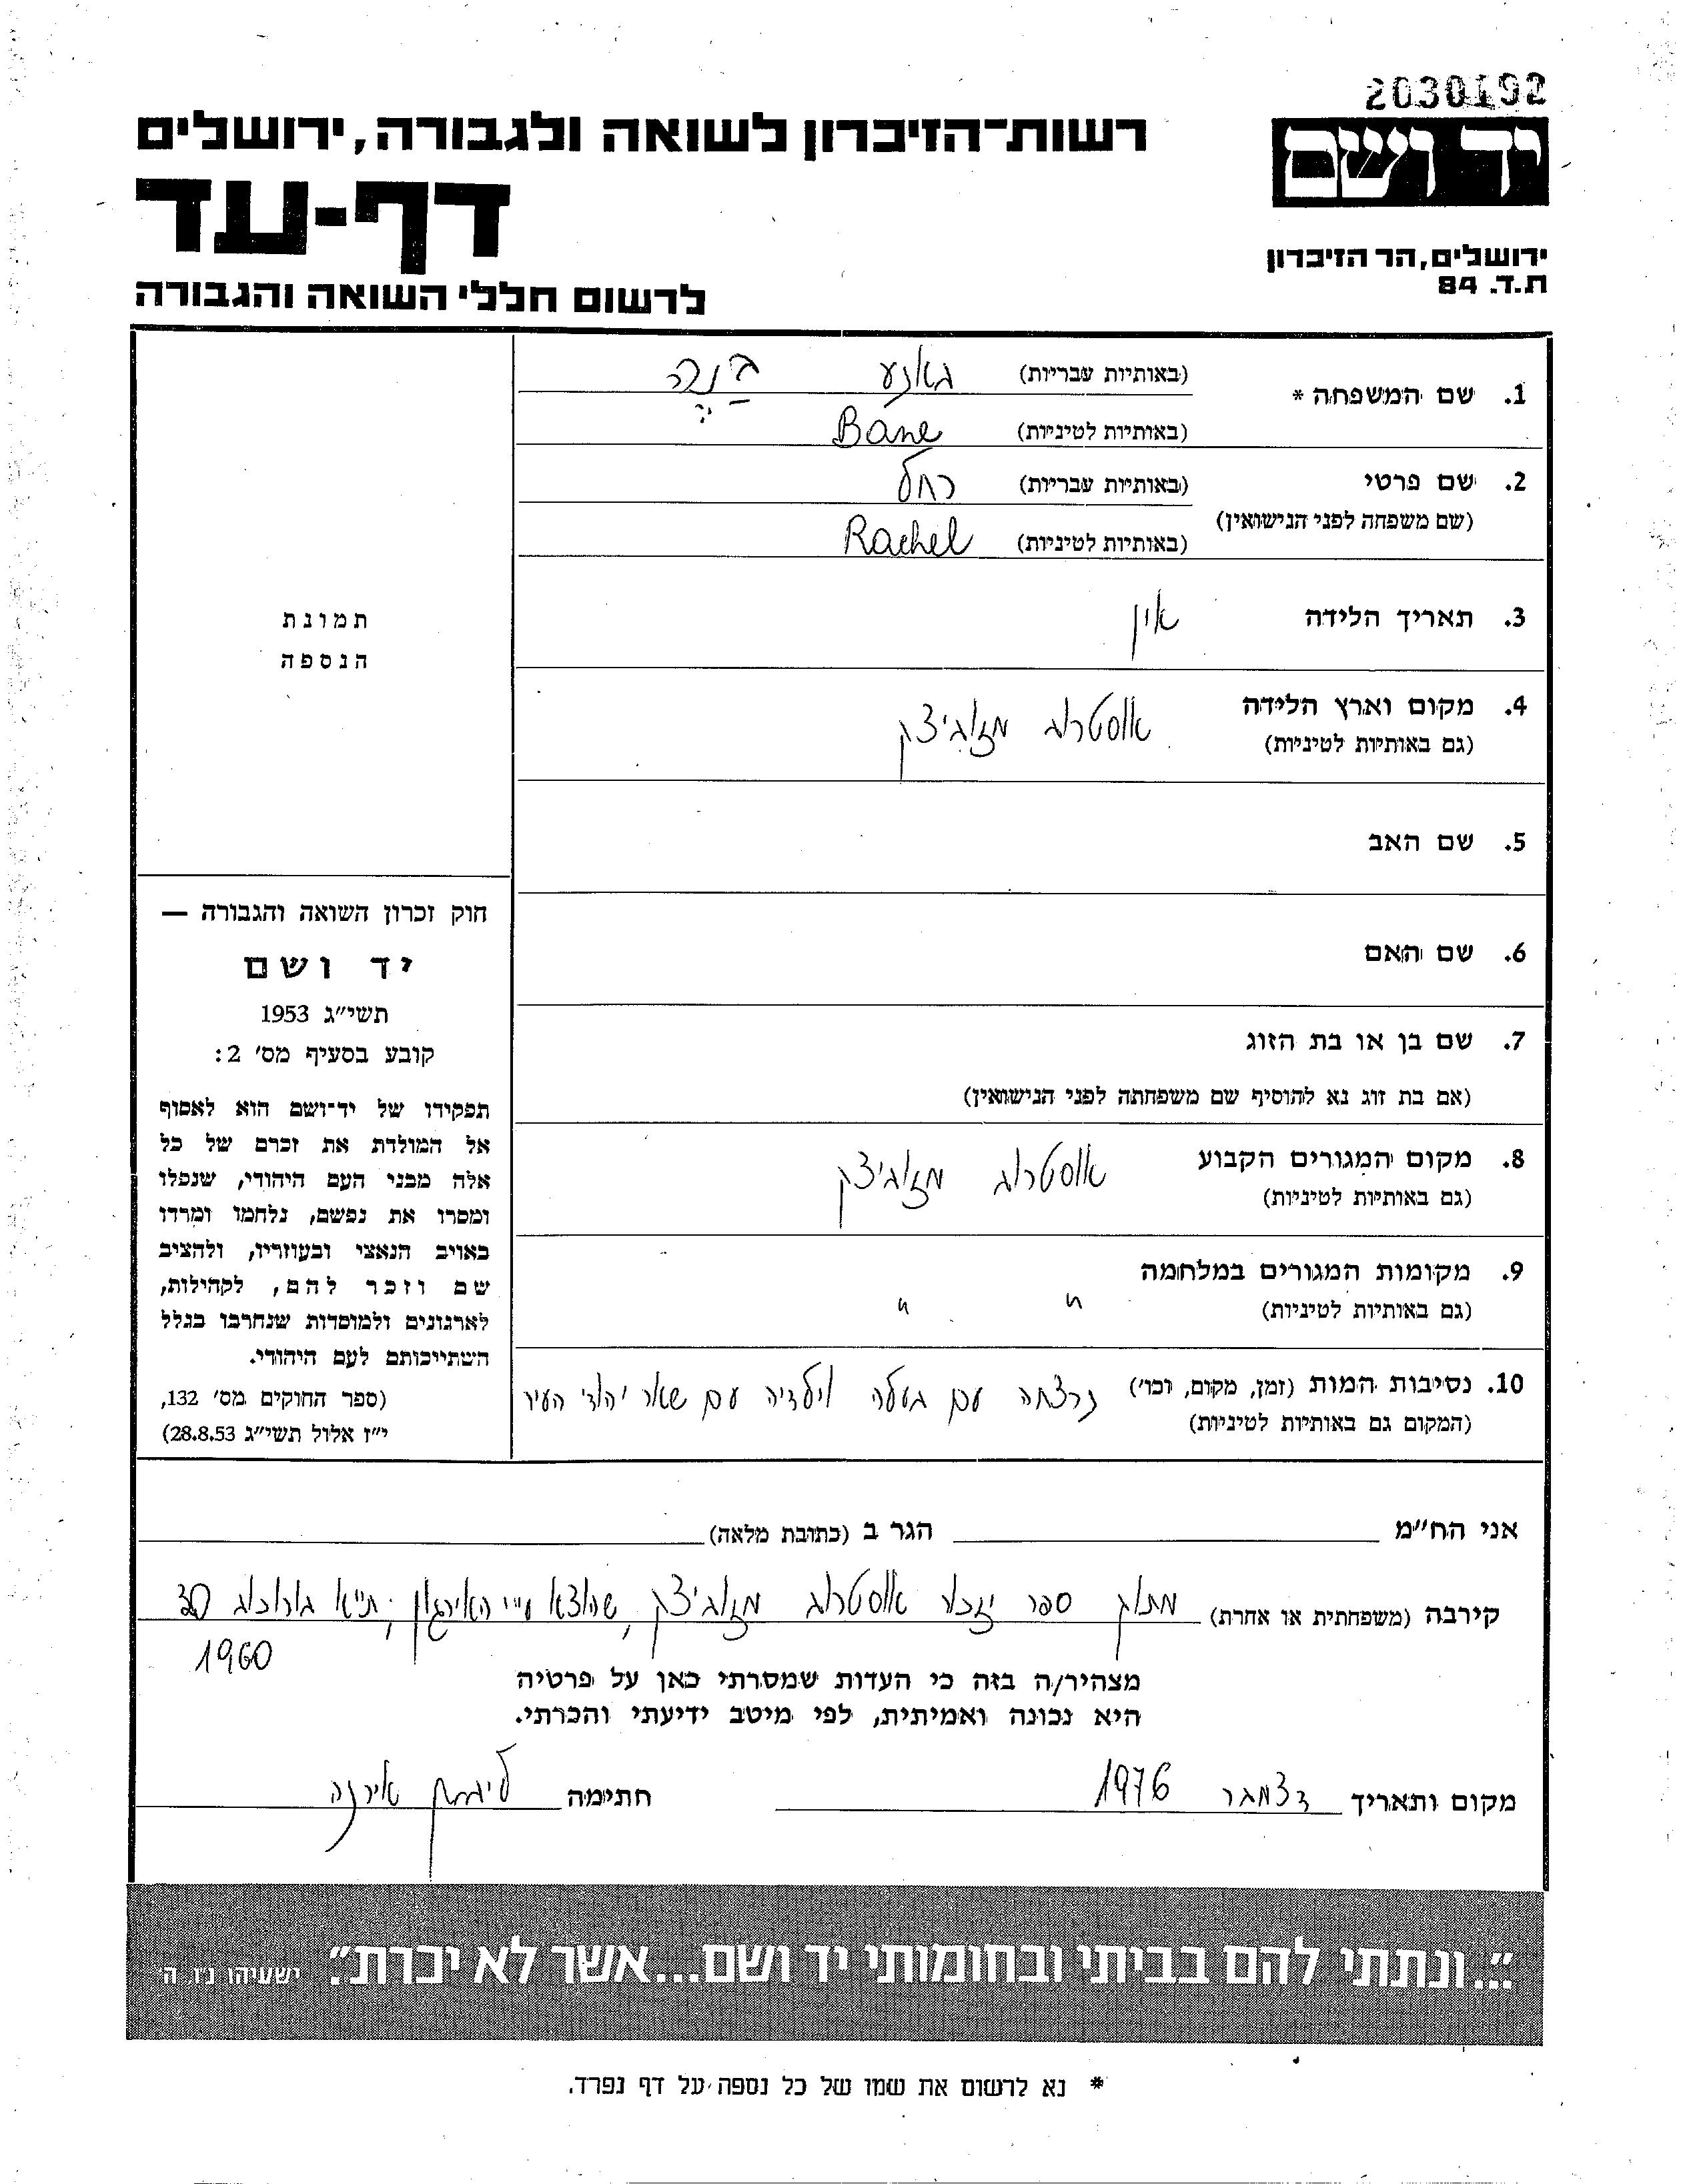 2030192
יד ושם
רשות-הזיכרון לשואה ולגבורה, ירושלים
דף-עד
ירושלים, הר הזיכרון
ת.ד. 84
לרשום חללי השואה והגבורה
1. שם המשפחה * (באותיות עבריות) באנע
(באותיות לטיניות) Bane
2. שם פרטי (באותיות עבריות) רחל
(שם משפחה לפני הנישואין) (באותיות לטיניות) Rachel
3. תאריך הלידה אין
4. מקום וארץ הלידה אוסטרוג מזוביצק
(גם באותיות לטיניות)
5. שם האב
6. שם האם
7. שם בן או בת הזוג
(אם בת זוג נא להוסיף שם משפחתה לפני הנישואין)
8. מקום המגורים הקבוע אוסטרוג מזוביצק
(גם באותיות לטיניות)
9. מקומות המגורים במלחמה " "
(גם באותיות לטיניות)
10. נסיבות המות (זמן, מקום, וכו') נרצחה עם בעלה וילדיה עם שאר יהודי העיר
(המקום גם באותיות לטיניות)
תמונת
הנספה
חוק זכרון השואה והגבורה —
יד ושם
תשי"ג 1953
קובע בסעיף מס' 2:
תפקידו של יד-ושם הוא לאסוף
אל המולדת את זכרם של כל
אלה מבני העם היהודי, שנפלו
ומסרו את נפשם, נלחמו ומרדו
באויב הנאצי ובעוזריו, ולהציב
שם וזכר להם, לקהילות,
לארגונים ולמוסדות שנחרבו בגלל
השתייכותם לעם היהודי.
(ספר החוקים מס' 132,
י"ז אלול תשי"ג 28.8.53)
אני הח"מ הגר ב (כתובת מלאה)
קירבה (משפחתית או אחרת) מתוך ספר יזכור אוסטרוג מזוביצק, שהוצא ע"י האירגון; ת"א
1960
מצהיר/ה בזה כי העדות שמסרתי כאן על פרטיה
היא נכונה ואמיתית, לפי מיטב ידיעתי והכרתי.
מקום ותאריך דצמבר 1976 חתימה אירנה
"...ונתתי להם בביתי ובחומותי יד ושם...אשר לא יכרת". ישעיהו נ"ו, ה'
* נא לרשום את שמו של כל נספה על דף נפרד.